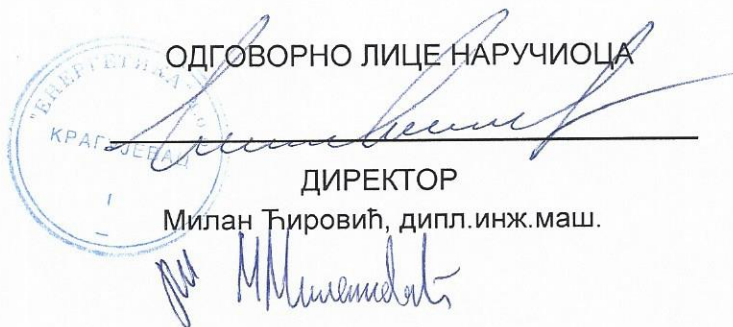 ОДГОВОРНО ЛИЦЕ НАРУЧИОЦА
"ЕНЕРГЕТИКА"
КРАГУЈЕВАЦ
I
ДИРЕКТОР
Милан Ћировић, дипл.инж.маш.